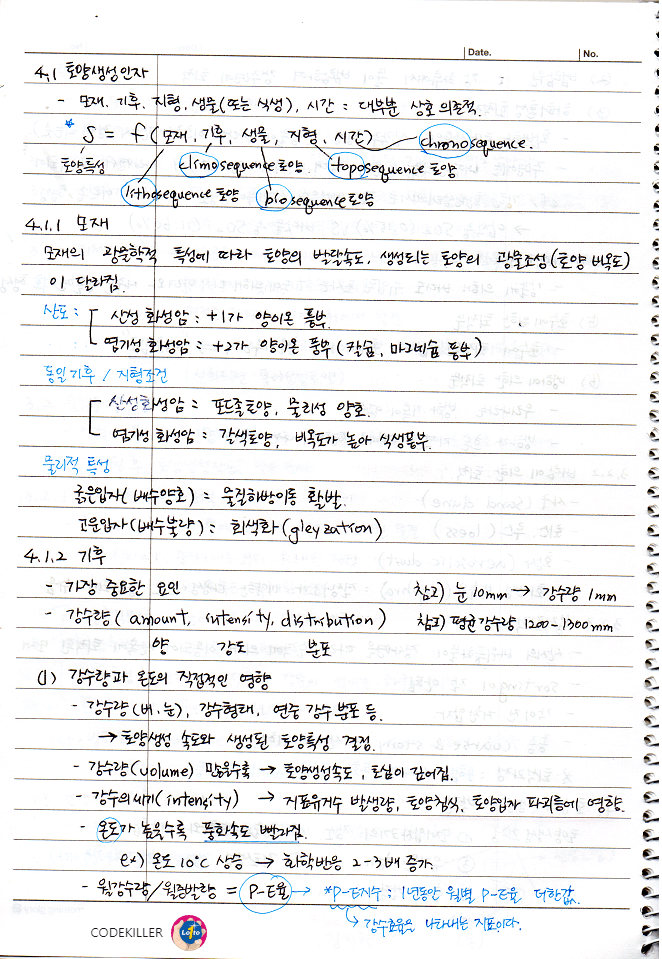 Date. No.
4.1 토양생성인자
- 모재, 기후, 지형, 생물(또는 식생), 시간 : 대부분 상호 의존적.
* S = f (모재, 기후, 생물, 지형, 시간) chronosequence.
토양특성 climosequence 토양 toposequence 토양
lithosequence 토양 biosequence 토양
4.1.1 모재
모재의 광물학적 특성에 따라 토양의 발달속도, 생성되는 토양의 광물조성(토양 비옥도)
이 달라짐.
산도 : 산성 화성암 : +1가 양이온 풍부.
염기성 화성암 : +2가 양이온 풍부 (칼슘, 마그네슘 풍부)
동일기후 / 지형조건
산성화성암 : 포드졸토양, 물리성 양호.
염기성 화성암 : 갈색토양, 비옥도가 높아 식생풍부.
물리적 특성
굵은입자(배수양호) : 물질하방이동 활발.
고운입자(배수불량) : 회색화(gleyzation)
4.1.2 기후
- 가장 중요한 요인 참고) 눈 10mm → 강수량 1mm
- 강수량 (amount, intensity, distribution) 참고) 평균강수량 1200-1300mm
양 강도 분포
(1) 강수량과 온도의 직접적인 영향
- 강수량(비, 눈), 강수형태, 연중 강수 분포 등.
→ 토양생성 속도와 생성된 토양특성 결정.
- 강수량(volume) 많을수록 → 토양생성속도, 토심이 깊어짐.
- 강수의 세기(intensity) → 지표유거수 발생량, 토양침식, 토양입자 파괴등에 영향.
- 온도가 높을수록 풍화속도 빨라짐.
ex) 온도 10°C 상승 → 화학반응 2-3배 증가.
- 월강수량/월증발량 = P-E율 → *P-E지수 : 1년동안 월별 P-E율 더한값.
↳ 강수효율을 나타내는 지표이다.
CODEKILLER Lotto